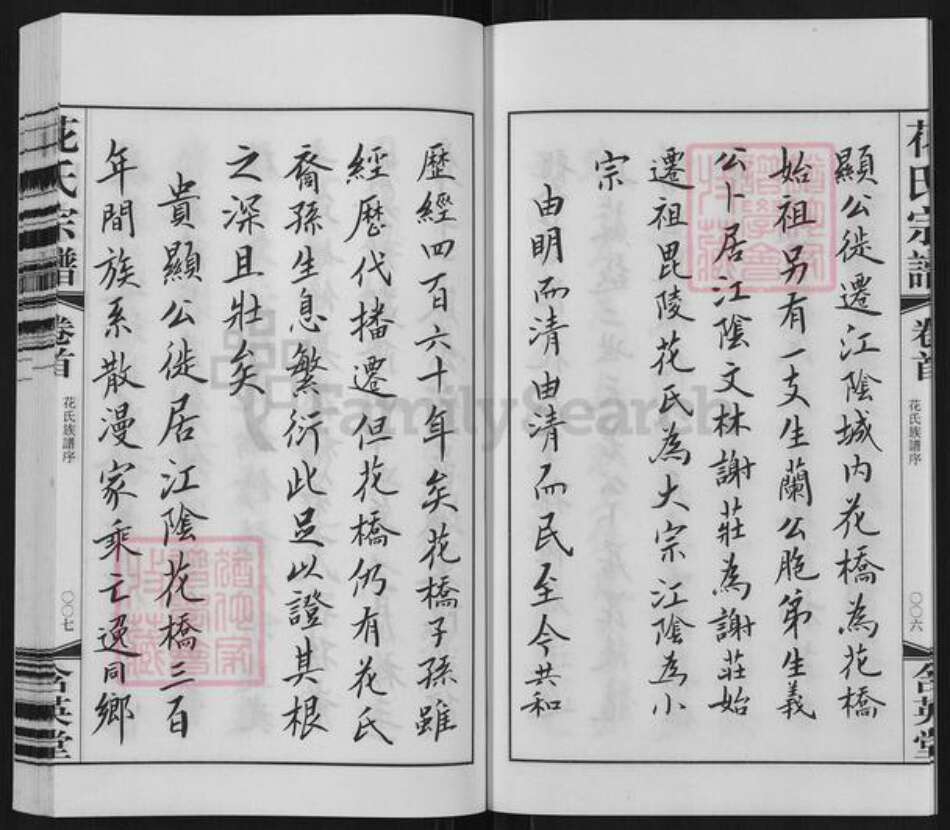 花氏宗譜
卷首
花氏族譜序
〇〇六
含英堂
顯公徙遷江陰城内花橋為花橋
始祖另有一支生蘭公胞弟生義
公卜居江陰文林謝莊為謝莊始
遷祖毘陵花氏為大宗江陰為小
宗
由明而清由清而民至今共和
歷經四百六十年矣花橋子孫雖
經歷代播遷但花橋仍有花氏
裔孫生息繁衍此足以證其根
之深且壯矣
貴顯公徙居江陰花橋三百
年間族系散漫家乘亡逸同鄉
花氏宗譜
卷首
花氏族譜序
〇〇七
含英堂
FamilySearch